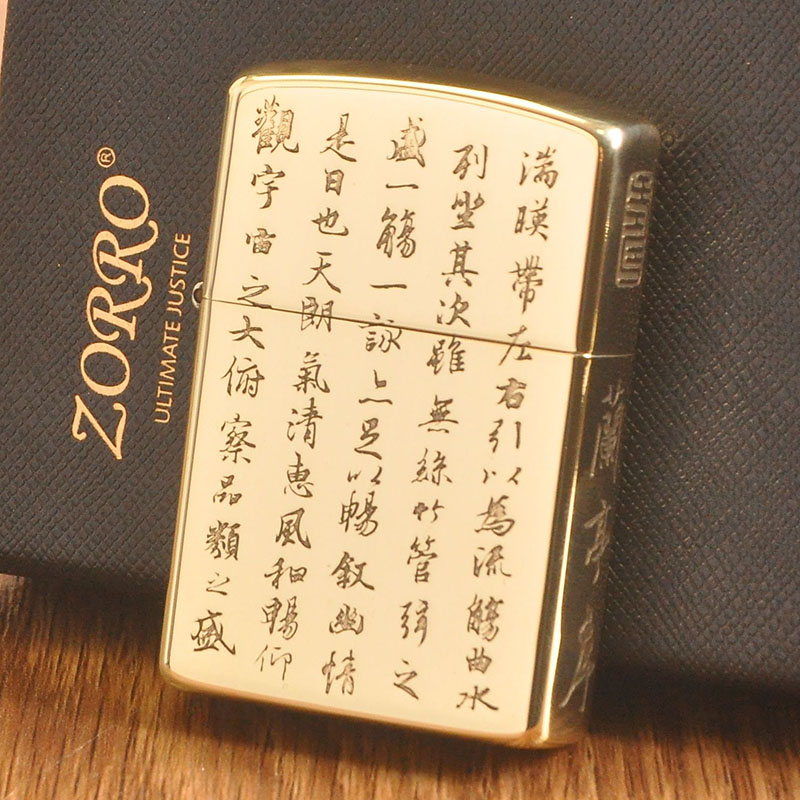 湍暎帶左右引以為流觴曲水
列坐其次雖無絲竹管弦之
盛一觴一詠亦足以暢叙幽情
是日也天朗氣清惠風和暢仰
觀宇宙之大俯察品類之盛
蘭亭序
ZORRO®
ULTIMATE JUSTICE